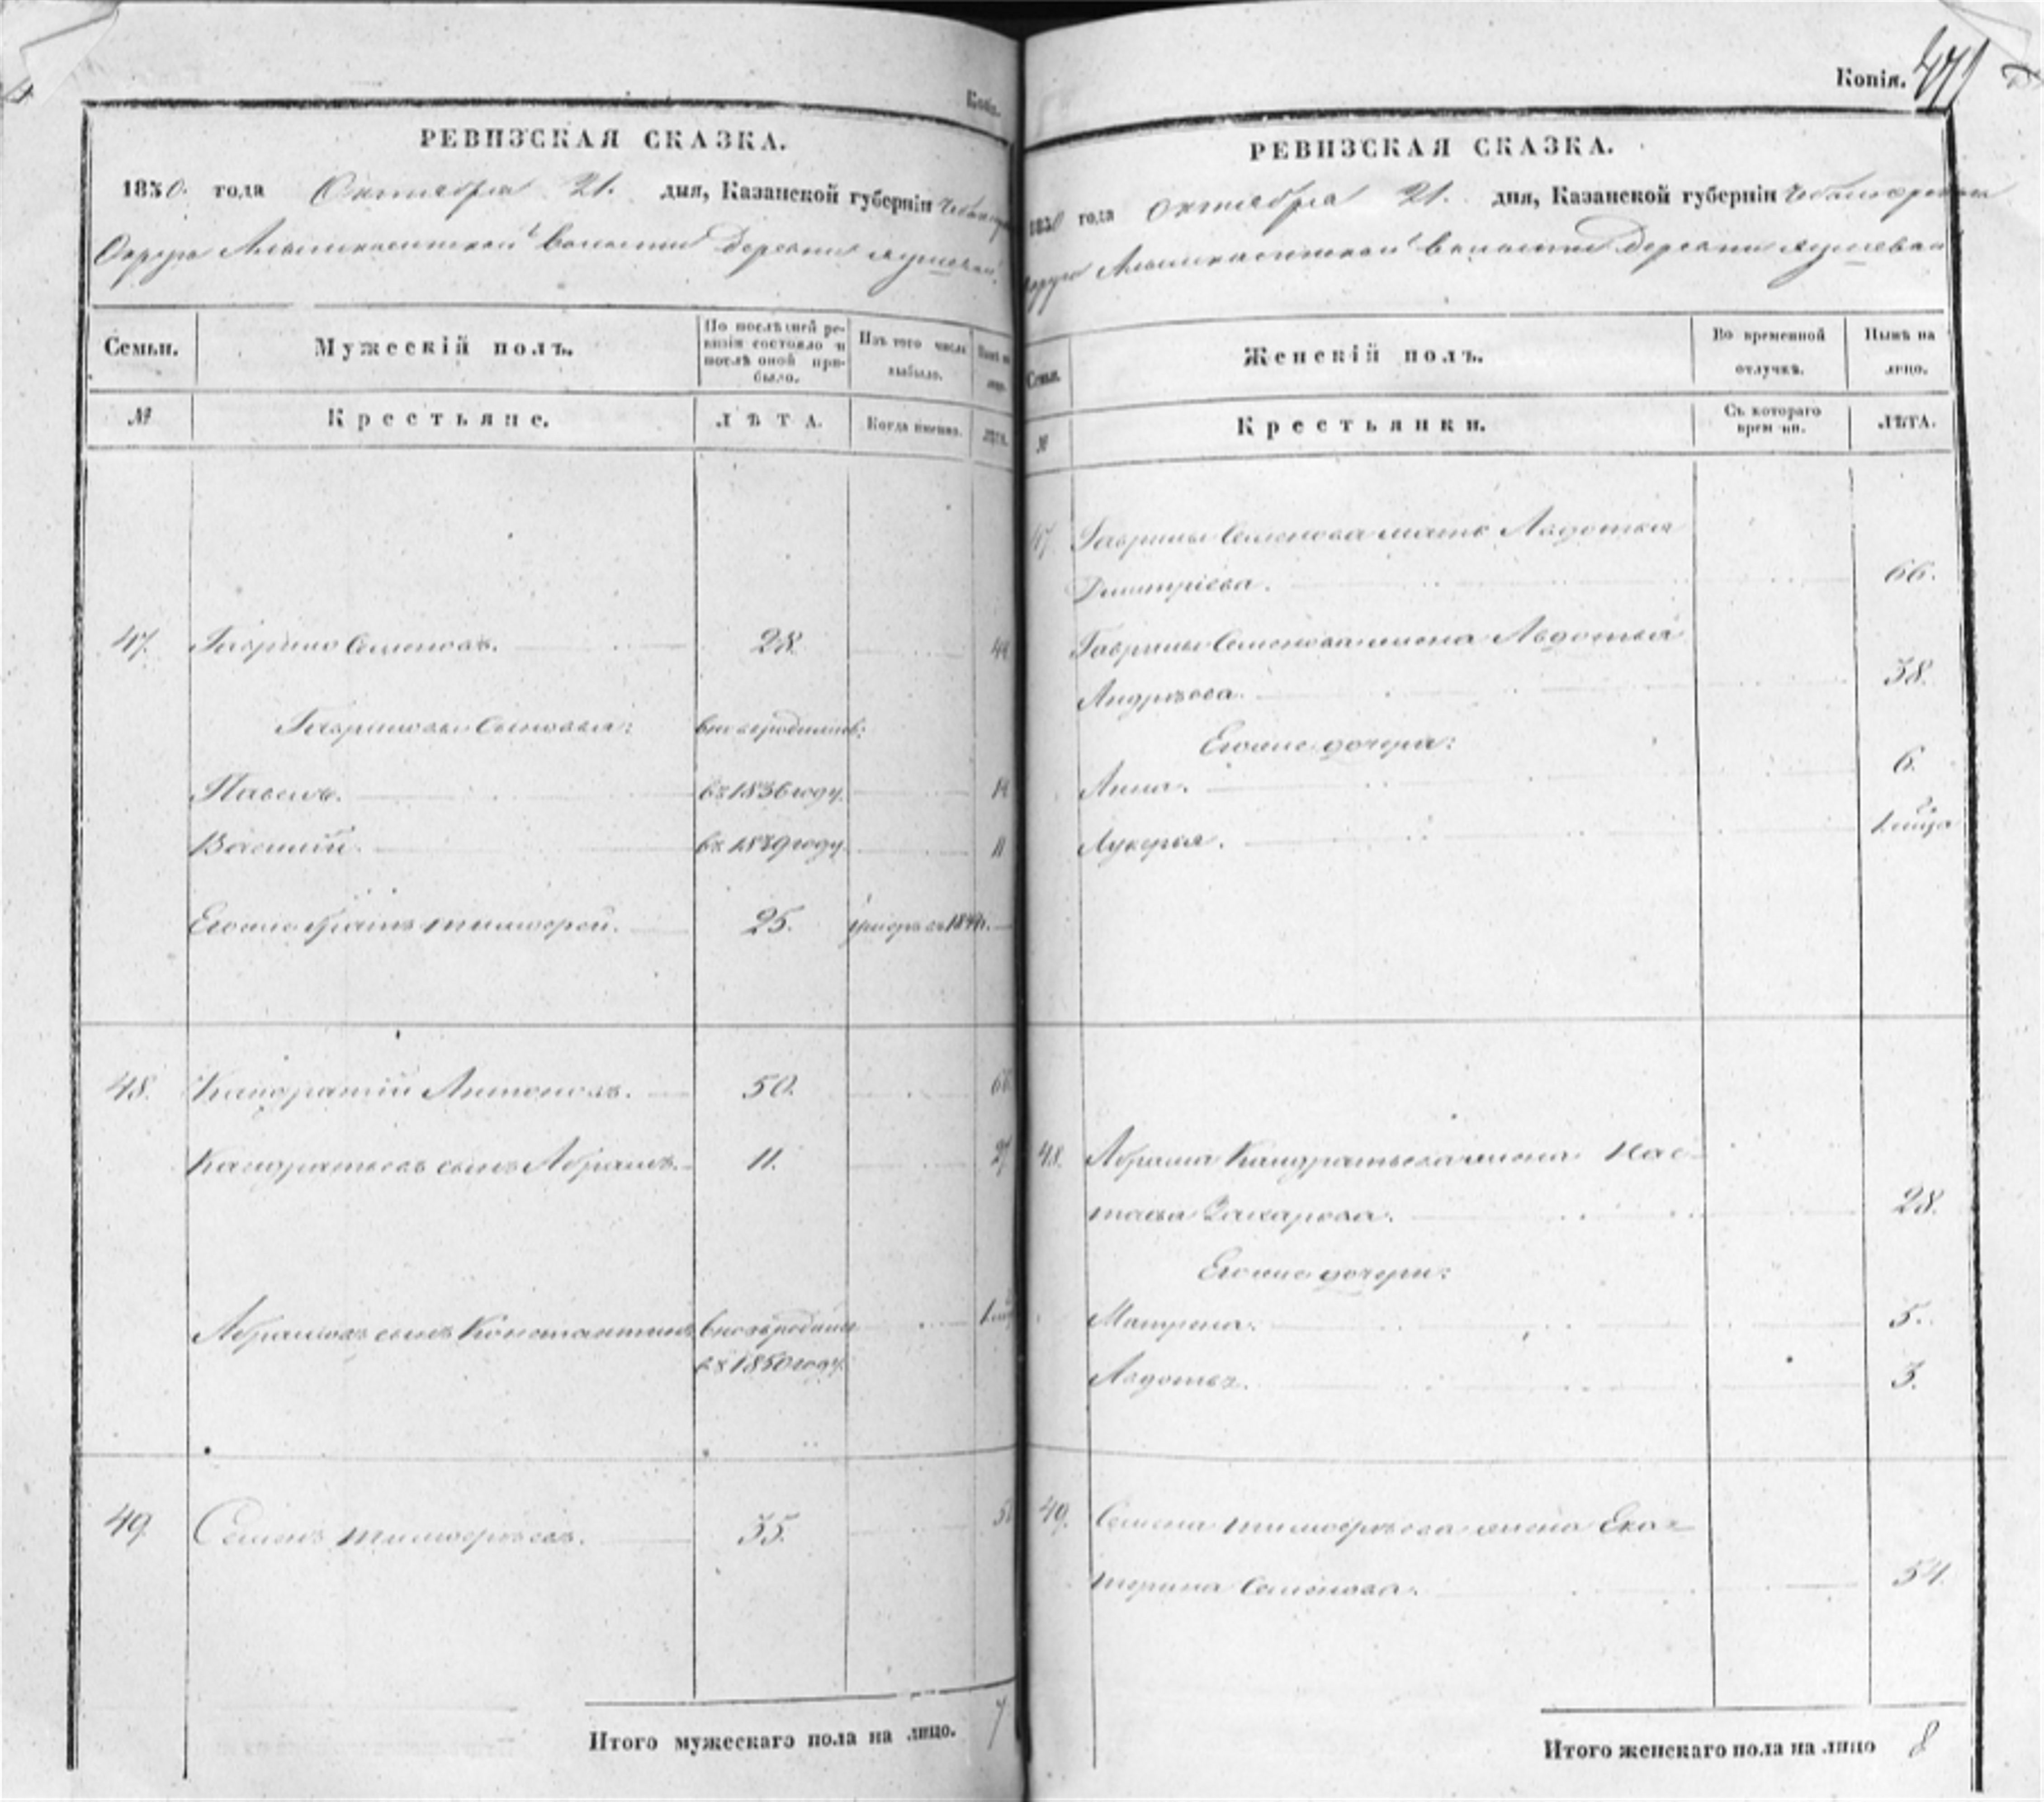 Копія.
РЕВИЗСКАЯ СКАЗКА.
1850. года Октября 21. дня, Казанской губерніи
Округа Волости Деревни
Семьи.
Мужескій полъ.
По послѣдней ре-
визіи состояло и
послѣ оной при-
было.
Изъ того числа
выбыло.
Нынѣ на
лицо.
№
Крестьяне.
ЛѢТА.
Когда именно.
ЛѢТА.
47. Гаврило Семеновъ. 28. 44
Гавриловы Сыновья: вновьрожденные:
Павелъ. въ 1836 году. 14
Василій. въ 1839 году. 11
Егоже братъ Тимофей. 25. умеръ въ
48. Кандратій Антоновъ. 50. 66
Кандратьевъ сынъ Абрамъ. 11. 27
Абрамовъ сынъ Константинъ
въ 1850 году.
49. Семенъ Тимофѣевъ. 35. 51
Итого мужескаго пола на лицо. 7
Копія. 471
РЕВИЗСКАЯ СКАЗКА.
1850 года Октября 21. дня, Казанской губерніи Чебоксарскаго
Округа Волости Деревни
Семьи.
Женскій полъ.
Во временной
отлучкѣ.
Нынѣ на
лицо.
№
Крестьянки.
Съ котораго
времени.
ЛѢТА.
47. Гаврилы Семенова мать Авдотья
Дмитріева. 66.
Гаврилы Семенова жена Авдотья
Андрѣева. 38.
Егоже дочери:
Анна. 6.
Лукерья.
48. Абрама Кандратьева жена Нас-
тасья Захарова. 28.
Егоже дочери:
Матрена. 5.
Авдотья. 3.
49. Семена Тимофѣева жена Ека-
терина Семенова. 54.
Итого женскаго пола на лицо 8